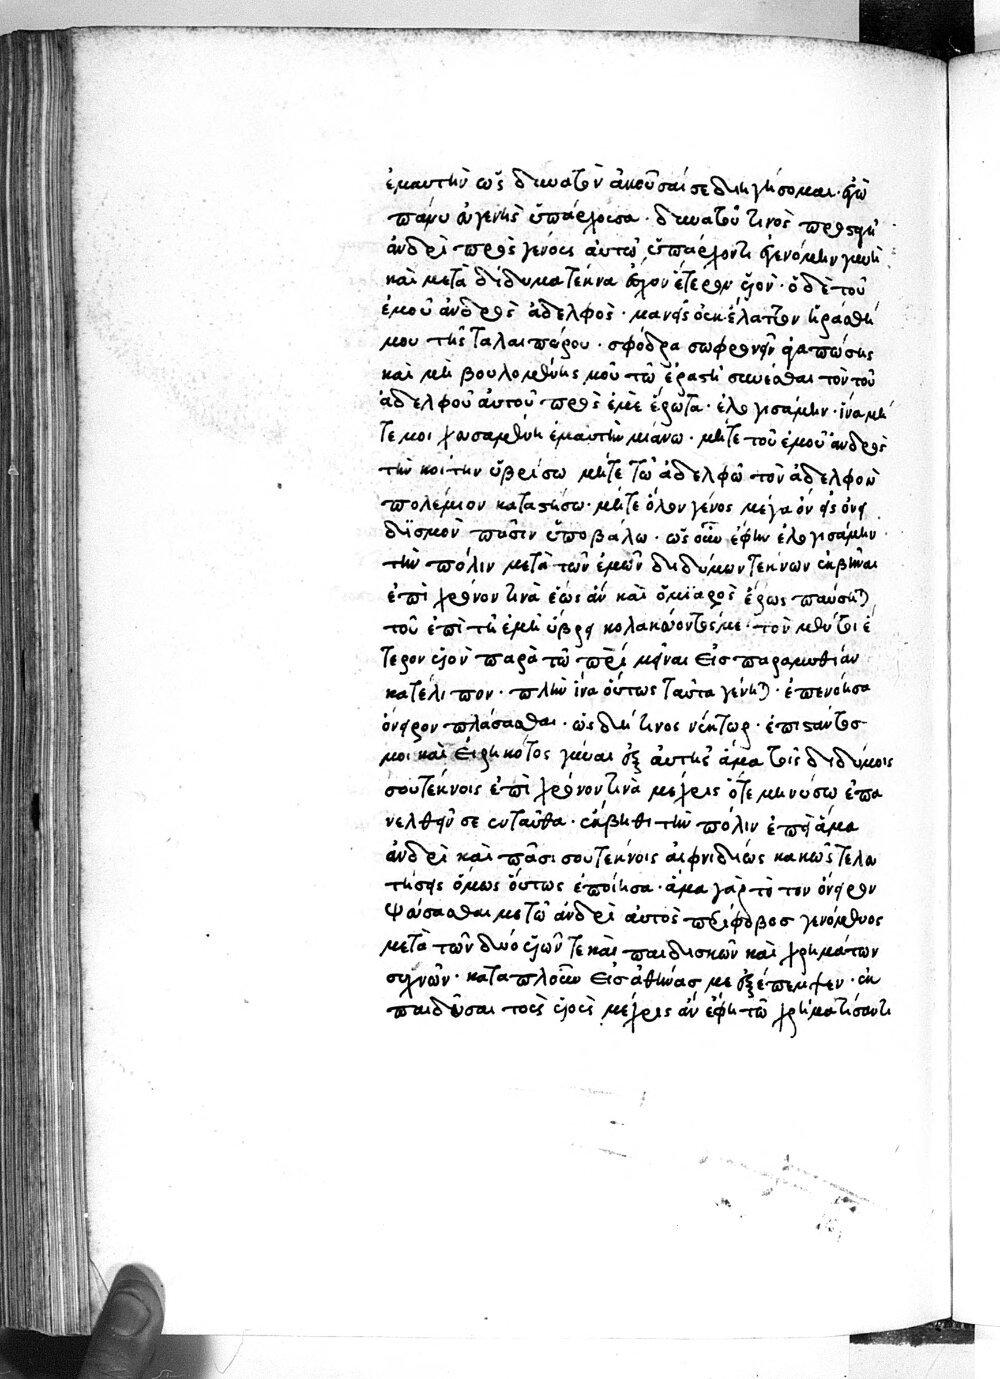 ἐμαυτὴν ὡς δυνατὸν ἀκοῦσαί σε διηγήσομαι· ἐγὼ
πάνυ εὐγενὴς ὑπάρχουσα· δυνατοῦ τινὸς προσφυῆ
ἀνδρὶ πρὸς γένους αὐτῷ ὑπάρχοντι ἐγενόμην γυνή·
καὶ μετὰ δίδυμα τέκνα ἔσχον ἕτερον υἱόν· ὁ δὲ τοῦ
ἐμοῦ ἀνδρὸς ἀδελφὸς· μανεὶς οὐκ ἔλαττον ἠράσθη
μου τῆς ταλαιπώρου· σφόδρα σωφρονεῖν ἀγαπώσης
καὶ μὴ βουλομένης μου τῷ ἐραστῇ συνέσθαι τὸν τοῦ
ἀδελφοῦ αὐτοῦ πρὸς ἐμὲ ἔρωτα· ἐλογισάμην· ἵνα μή
τε μοι χρησαμένη ἐμαυτὴν μιάνω· μήτε τοῦ ἐμοῦ ἀνδρὸς
τὴν κοίτην ὑβρίσω μήτε τῷ ἀδελφῷ τὸν ἀδελφὸν
πολέμιον καταστήσω· μήτε ὅλον γένος μέγα ὂν εἰς ὀνει
δισμὸν πᾶσιν ὑποβάλω· ὡς οὖν ἔφην ἐλογισάμην·
τὴν πόλιν μετὰ τῶν ἐμῶν διδύμων τέκνων ἐκβῆναι
ἐπὶ χρόνον τινὰ ἕως ἂν καὶ ὁ μιαρὸς ἔρως παύσηται
τοῦ ἐπὶ τῇ ἐμῇ ὕβρει κολακεύοντός με· τὸν μέντοι ἕ
τερον υἱὸν παρὰ τῷ πατρὶ μεῖναι εἰς παραμυθίαν
κατέλιπον· πλὴν ἵνα οὕτως ταῦτα γένηται· ἐπενόησα
ὄνειρον πλάσασθαι· ὡς δή τινος νύκτωρ· ἐπιστάντος
μοι καὶ εἰρηκότος γύναι ἐξ αὐτῆς ἅμα τοῖς διδύμοις
σου τέκνοις ἐπὶ χρόνον τινὰ μέχρις ὅτε μηνύσω ἐπα
νελθεῖν σε ἐνταῦθα· ἔκβηθι τὴν πόλιν ἐπεὶ ἅμα
ἀνδρὶ καὶ πᾶσί σου τέκνοις αἰφνιδίως κακῶς τελευ
τήσεις ὅμως οὕτως ἐποίησα· ἅμα γὰρ τὸ τὸν ὄνειρον
ψεύσασθαι με τῷ ἀνδρὶ αὐτὸς περίφοβος γενόμενος
μετὰ τῶν δύο υἱῶν τε καὶ παιδισκῶν καὶ χρημάτων
συχνῶν· καταπλοῦν εἰς ἀθήνας με ἐξέπεμψεν· ἐκ
παιδεῦσαι τοὺς υἱοὺς μέχρις ἂν ἔφη τῷ χρηματίσαντι